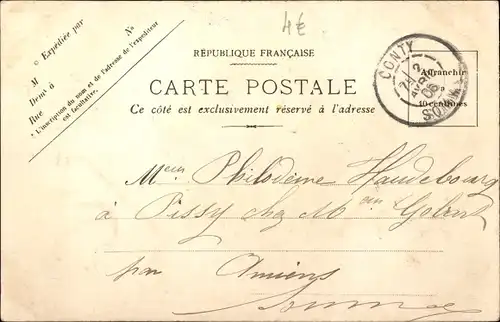 4€
Nº
Expédiée par
M
Demt à
Rue
L'inscription du nom et de l'adresse de l'expéditeur
est facultative.
RÉPUBLIQUE FRANÇAISE
CARTE POSTALE
Ce côté est exclusivement réservé à l'adresse
CONTY
2
AVRIL
06
SOMME
Affranchir
à
10 centimes
Philodème Haudebourg
à Pissy chez M
par Amiens
Somme